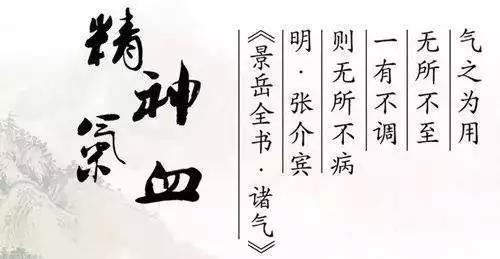 气之为用
无所不至
一有不调
则无所不病
明·张介宾
《景岳全书·诸气》
精神
氣血